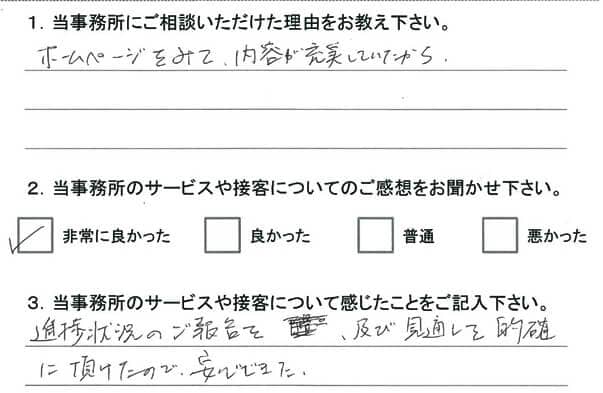 1. 当事務所にご相談いただけた理由をお教え下さい。
ホームページをみて、内容が充実していたから.
2. 当事務所のサービスや接客についてのご感想をお聞かせ下さい。
非常に良かった 良かった 普通 悪かった
3. 当事務所のサービスや接客について感じたことをご記入下さい。
進捗状況のご報告を 、及び見通しを的確
に頂けたので、安心できた.